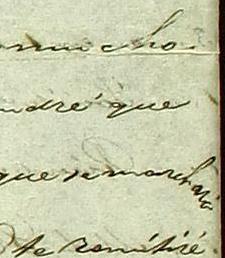 mucho
tendré que
que se marchará
te remitiré.